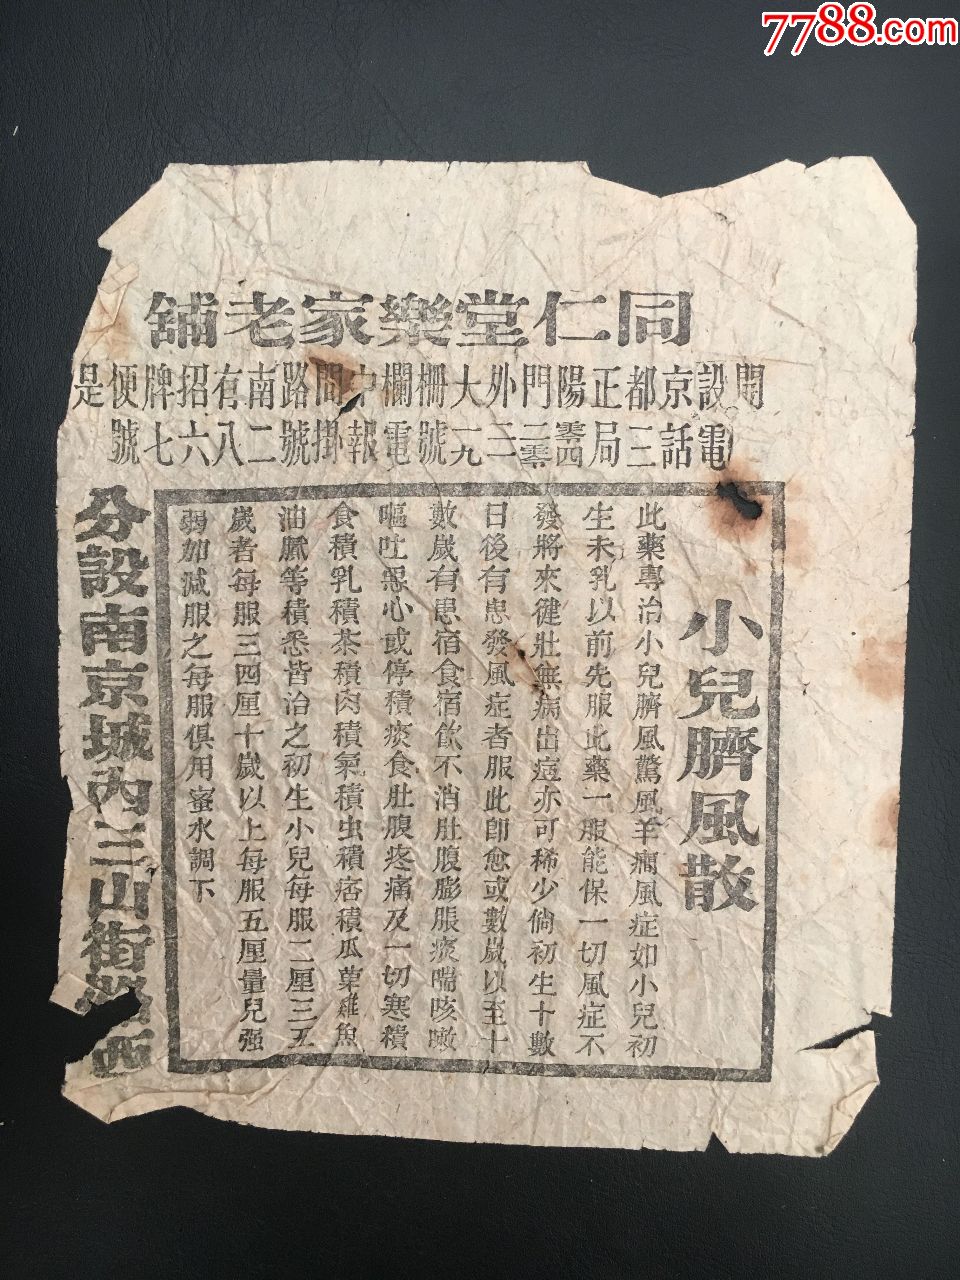 7788.com
同仁堂樂家老舖
開設京都正陽門外大柵欄中間路南有招牌便是
電話三局零四二零二一九號電報掛號二八六七號
小兒臍風散
此藥專治小兒臍風驚風羊癇風症如小兒初
生未乳以前先服此藥一服能保一切風症不
發將來健壯無病出痘亦可稀少倘初生十數
日後有患發風症者服此即愈或數歲以至十
數歲有患宿食宿飲不消肚腹膨脹痰喘咳嗽
嘔吐惡心或停積痰食肚腹疼痛及一切寒積
食積乳積茶積肉積氣積虫積痞積瓜菓雞魚
油膩等積悉皆治之初生小兒每服二厘三五
歲者每服三四厘十歲以上每服五厘量兒强
弱加減服之每服俱用蜜水調下
分設南京城內三山街路西